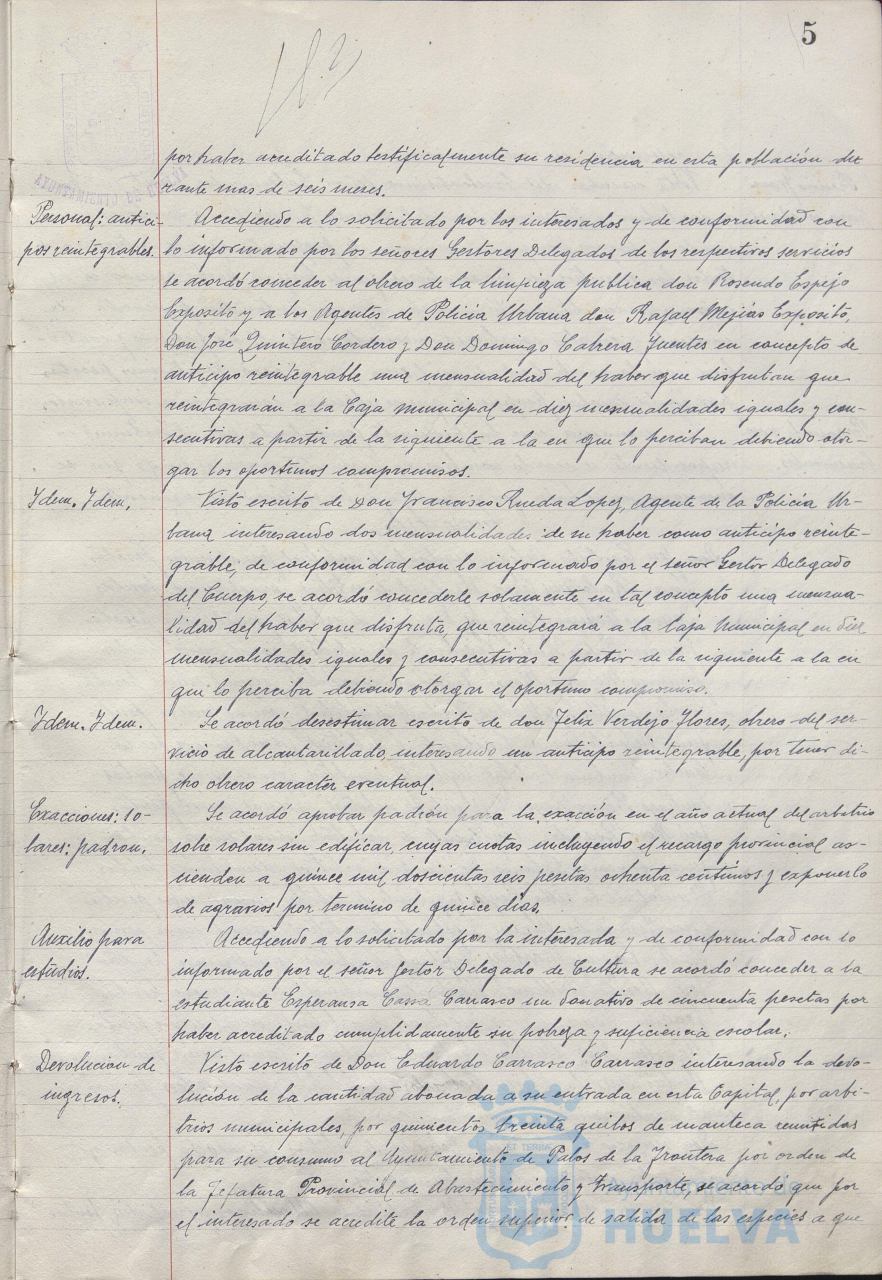 5
por haber acreditado testificalmente su residencia en esta población du-
rante mas de seis meses.
Personal: antici-
pos reintegrables.
Accediendo a lo solicitado por los interesados y de conformidad con
lo informado por los señores Gestores Delegados de los respectivos servicios
se acordó conceder al obrero de la limpieza publica don Rosendo Espejo
Exposito y a los Agentes de Policia Urbana don Rafael Mejias Exposito,
Don José Quintero Cordero y Don Domingo Cabrera Fuentes en concepto de
anticipo reintegrable una mensualidad del haber que disfrutan que
reintegrarán a la Caja municipal en diez mensualidades iguales y con-
secutivas a partir de la siguiente a la en que lo perciban debiendo otor-
gar los oportunos compromisos.
Idem. Idem.
Visto escrito de Don Francisco Rueda Lopez, Agente de la Policia Ur-
bana interesando dos mensualidades de su haber como anticipo reinte-
grable, de conformidad con lo informado por el señor Gestor Delegado
del Cuerpo, se acordó concederle solamente en tal concepto una mensua-
lidad del haber que disfruta, que reintegrará a la Caja Municipal en diez
mensualidades iguales y consecutivas a partir de la siguiente a la en
que lo perciba debiendo otorgar el oportuno compromiso.
Idem. Idem.
Se acordó desestimar escrito de don Felix Verdejo Flores, obrero del ser-
vicio de alcantarillado, interesando un anticipo reintegrable, por tener di-
cho obrero caracter eventual.
Exacciones: so-
lares: padron.
Se acordó aprobar padrón para la exacción en el año actual del arbitrio
sobre solares sin edificar, cuyas cuotas incluyendo el recargo provincial as-
cienden a quince mil doscientas seis pesetas ochenta centimos y exponerlo
de agravios por termino de quince dias.
Auxilio para
estudios.
Accediendo a lo solicitado por la interesada y de conformidad con lo
informado por el señor Gestor Delegado de Cultura se acordó conceder a la
estudiante Esperansa Cassá Carrasco un donativo de cincuenta pesetas por
haber acreditado cumplidamente su pobreza y suficiencia escolar.
Devolucion de
ingresos.
Visto escrito de Don Eduardo Carrasco Carrasco interesando la devo-
lución de la cantidad abonada a su entrada en esta Capital, por arbi-
trios municipales, por quinientos treinta quilos de manteca remitidas
para su consumo al Ayuntamiento de Palos de la Frontera por orden de
la Jefatura Provincial de Abastecimiento y Transporte, se acordó que por
el interesado se acredite la orden superior de salida de las especies a que
HUELVA